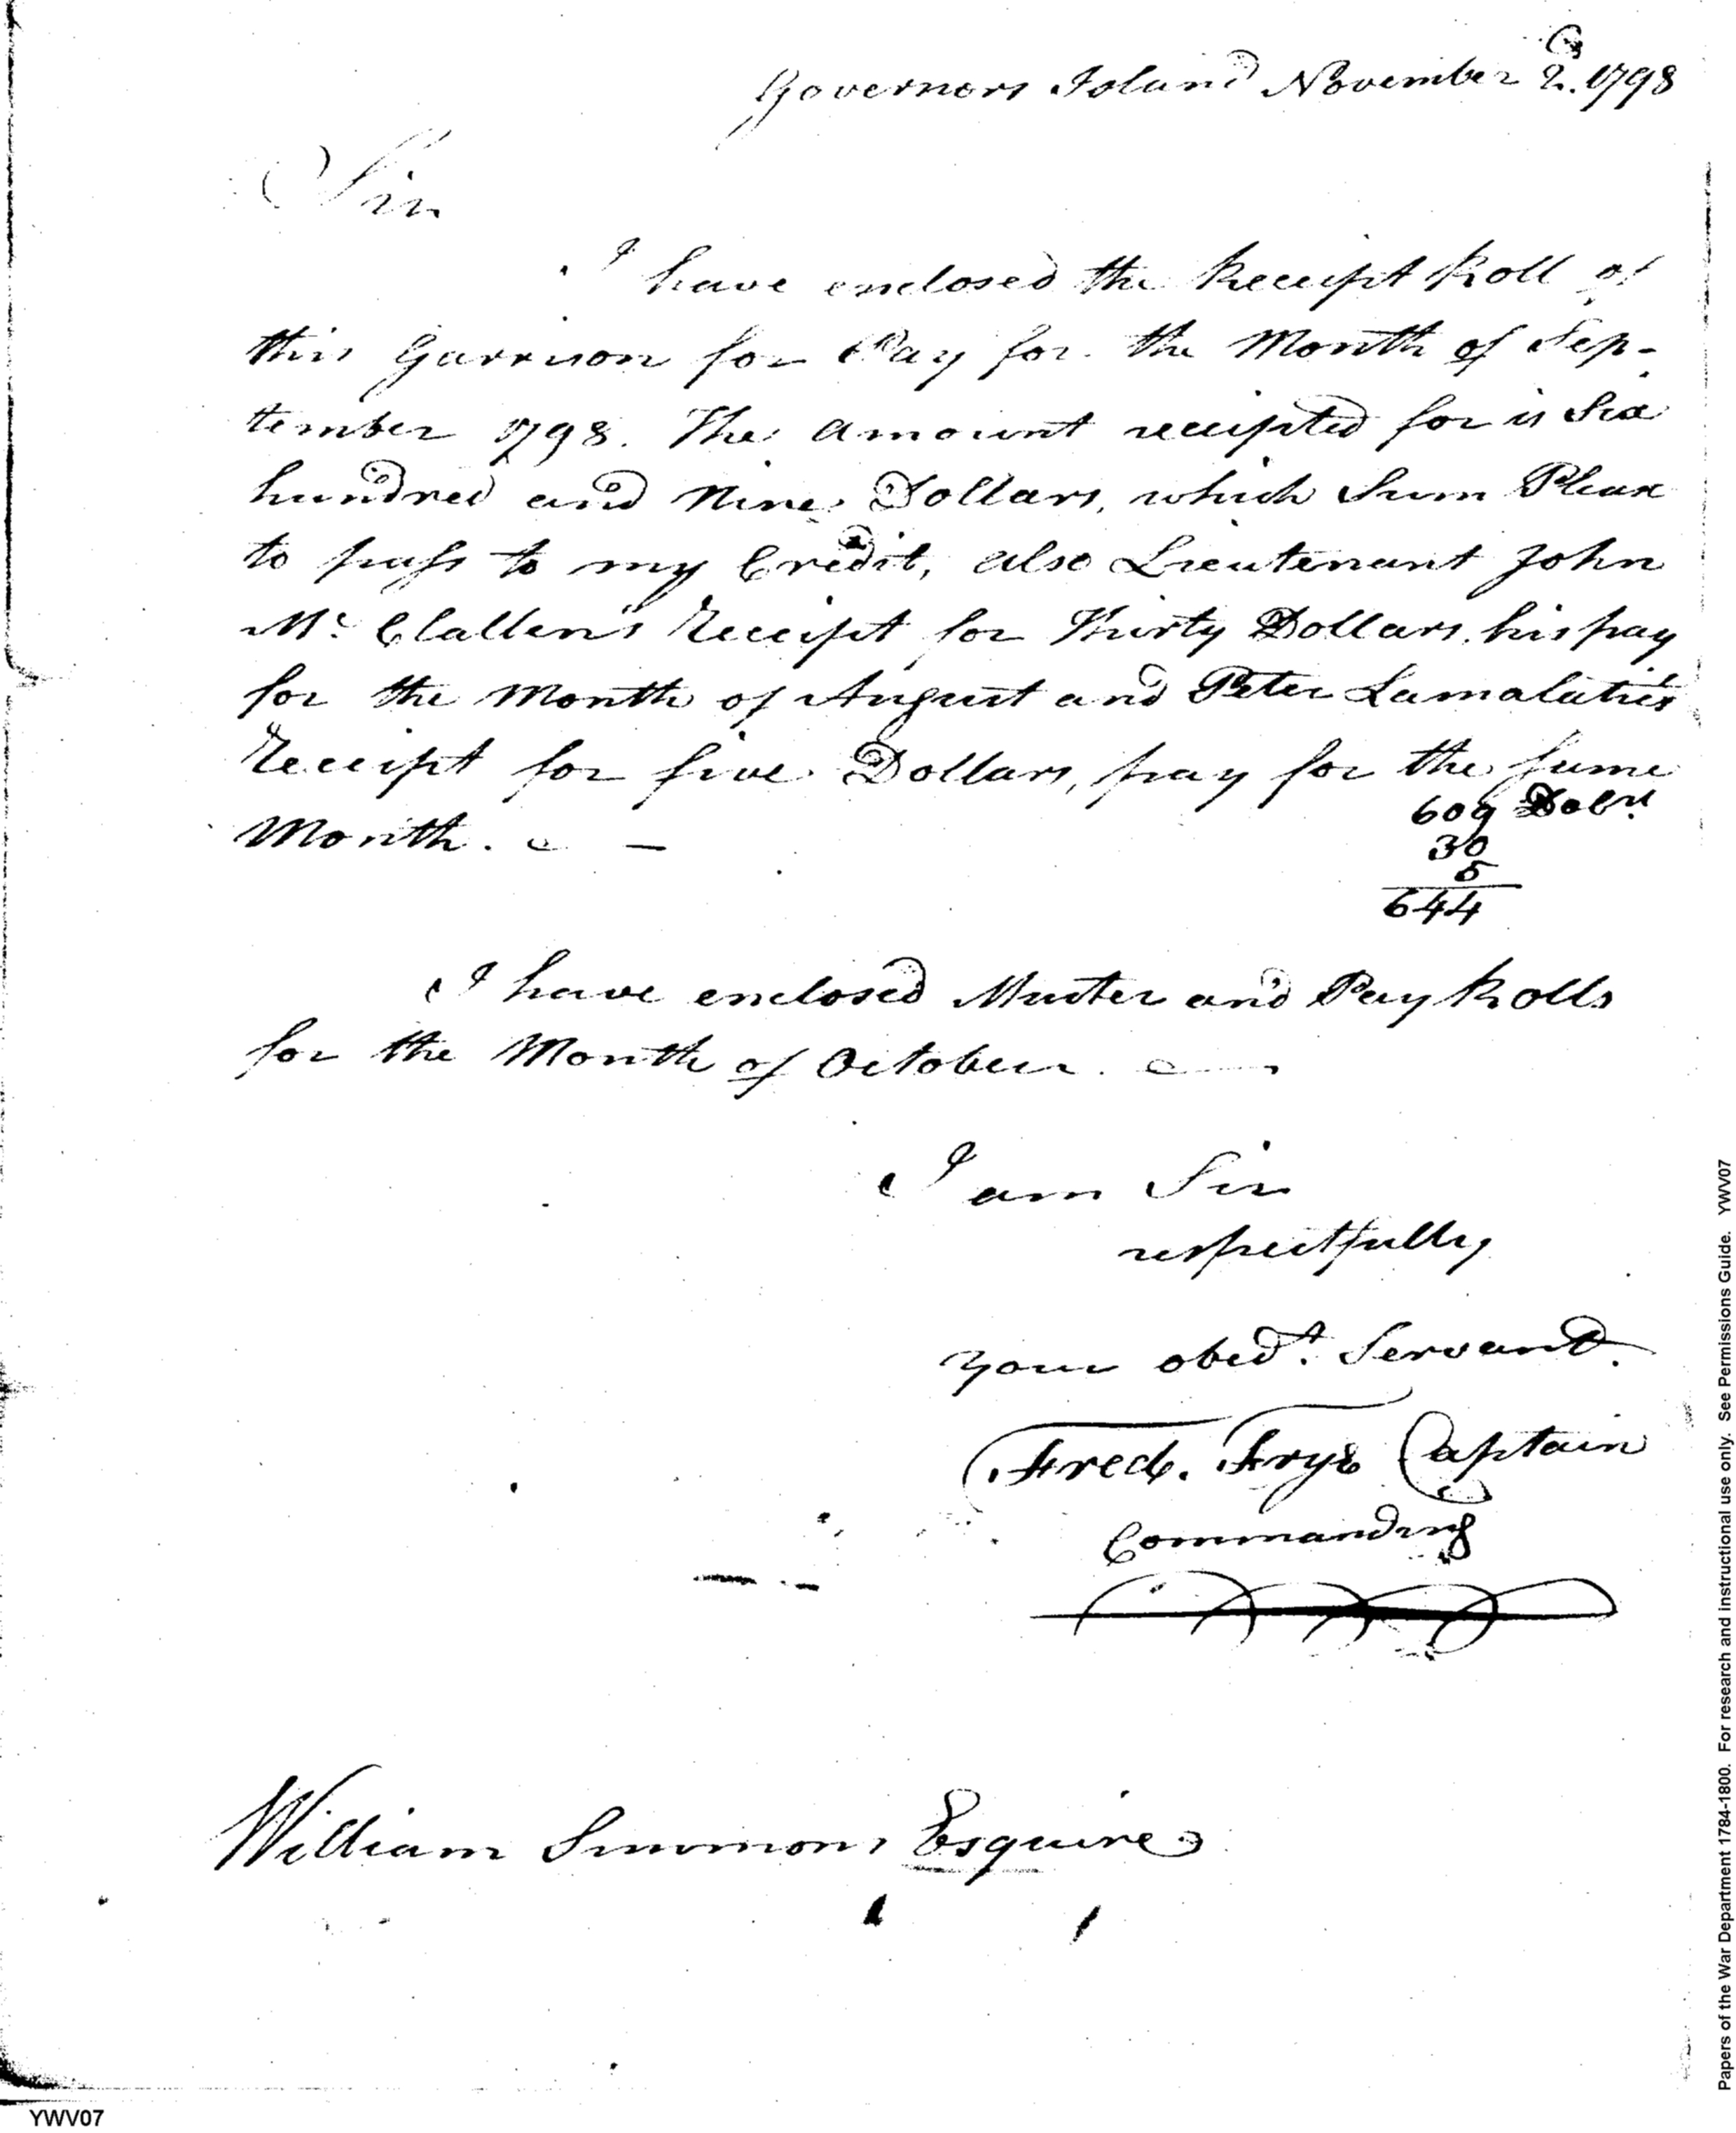 Governors Island November 2d. 1798
Sir
I have enclosed the Receipt Roll of
this Garrison for Pay for the Month of Sep-
tember 1798. The amount receipted for is Six
hundred and Nine Dollars, which Sum Please
to pass to my Credit, also Lieutenant John
Mc. Clallen's Receipt for Thirty Dollars, his pay
for the Month of August and Peter
Receipt for five Dollars, pay for the same
Month. —
609 Dolrs.
30
5
644
I have enclosed Muster and Pay Rolls
for the Month of October. —
I am Sir
respectfully
Your obedt. Servant.
Fred. Frye Captain
Commanding
William Simmons Esquire
Papers of the War Department 1784-1800. For research and instructional use only. See Permissions Guide. YWV07
YWV07